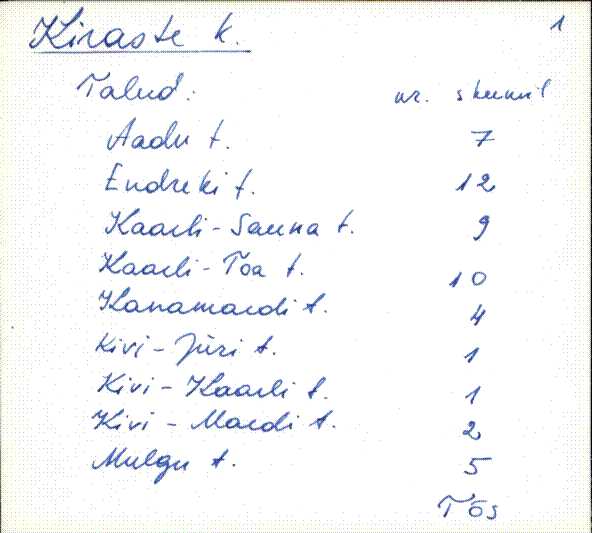 Kiraste k. 1
Talud: nr. skeemil
Aadu t. 7
Endreki t. 12
Kaarli-Sauna t. 9
Kaarli-Toa t. 10
Kanamardi t. 4
Kivi-Jüri t. 1
Kivi-Kaarli t. 1
Kivi-Mardi t. 2
Mulgu t. 5
Tõs